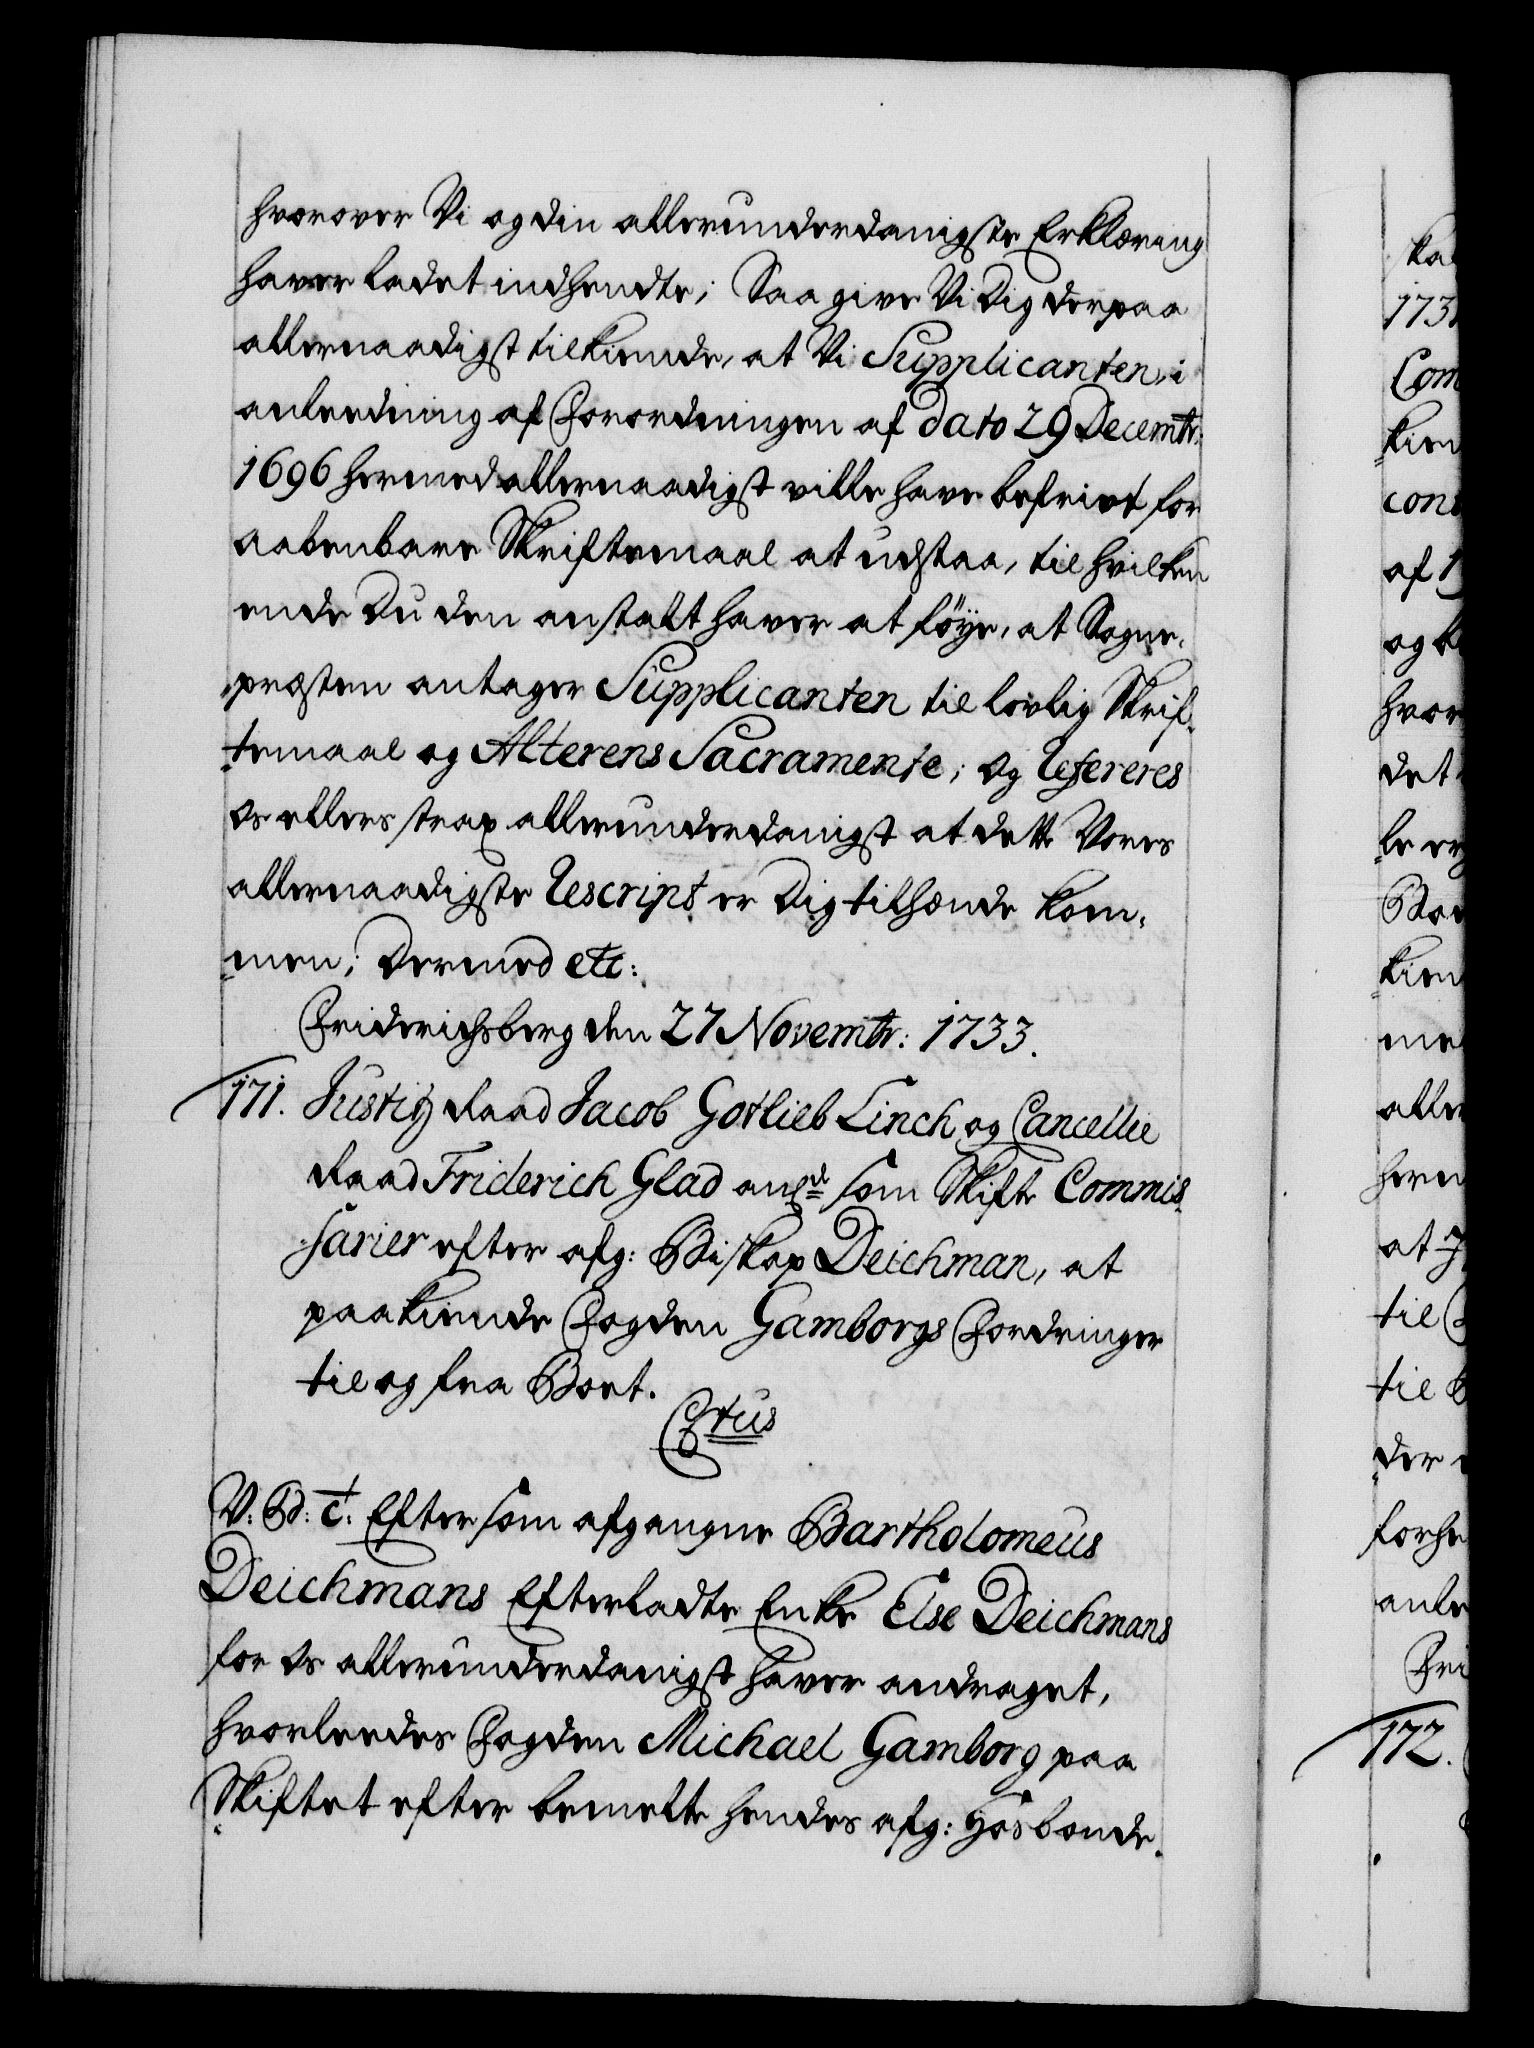 hvorover Vi og din allerunderdanigste Erklæring
haver ladet indhendte; Saa give Vi Dig derpaa
allernaadigst tilkiende, at Vi Supplicanten, i
anleedning af Forordningen af dato 29 Decembr:
1696 hermed allernaadigst ville have befriet for
aabenbare Skriftemaal at udstaa, til hvilken
ende Du den anstalt haver at föÿe, at Sogne-
præsten antager Supplicanten til lovlig Skrif-
temaal og Alterens Sacramente; og Refereres
Os ellers strax allerunderdanigst at dette Vores
allernaadigste Rescript er Dig tilhænde kom-
men; Dermed etc:
Friderichsberg den 27 Novembr: 1733.
171. Justitz Raad Jacob Gotlieb Linch og Cancellie
Raad Friderich Glad and som Skifte Commis-
sarier efter afg: Biskop Deichman, at
paakiende Fogden Gamborgs Fordringer
til og fra Boet.
V: Gd: t: Eftersom afgangne Bartholomeus
Deichmans Efterladte Enke Else Deichmans
for Os allerunderdanigst haver andraget,
hvorleedes Fogden Michael Gamborg paa
Skiftet efter bemelte hendes afg: Hosbonde
skal
1731
Com
kien
af 1
det
kien
til
til
der
172.